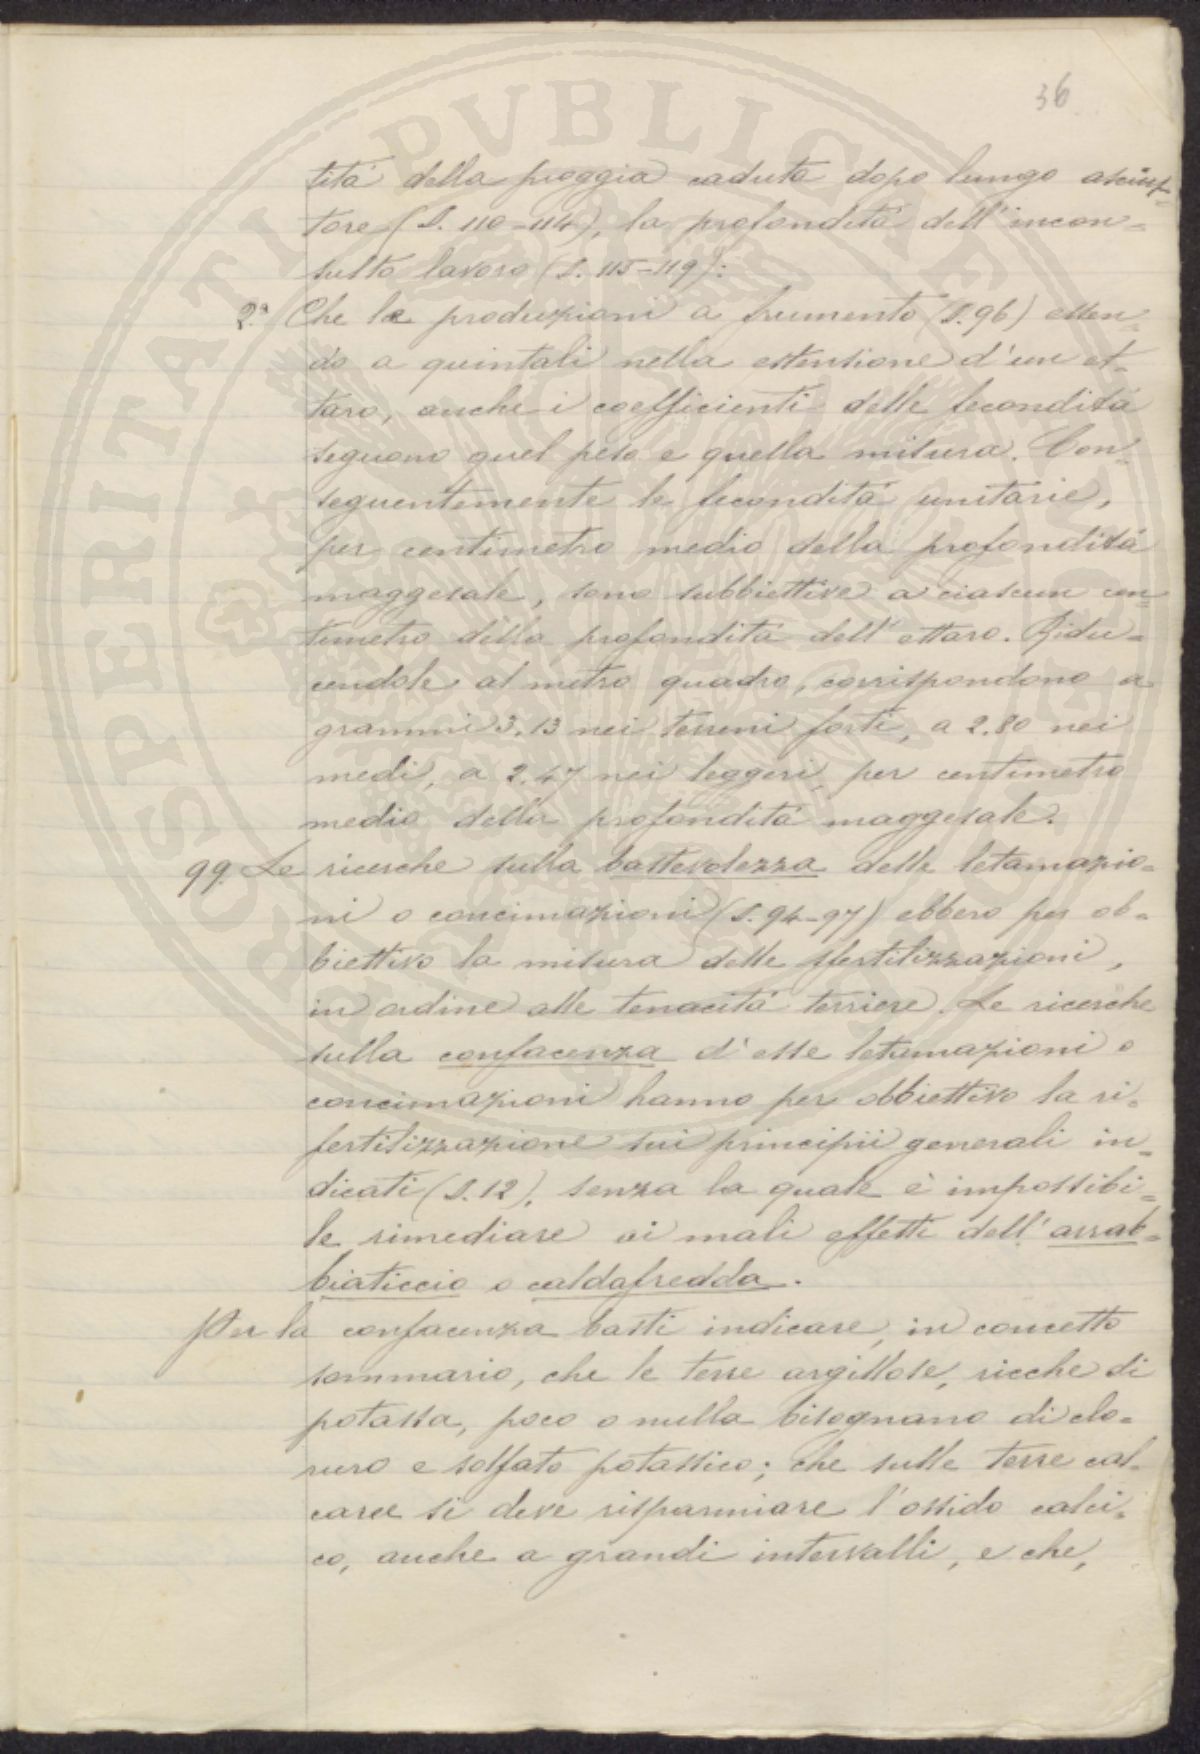 36
tità della pioggia caduta dopo lungo asciut=
tore (S. 110-114), la profondità dell'incon=
sulto lavoro (S. 115-119):
2.° Che le produzioni a frumento (S. 96) essen=
do a quintali nella estensione d'un et=
taro, anche i coefficienti delle fecondità
seguono quel peso e quella misura. Con=
seguentemente le fecondità unitarie,
per centimetro medio della profondità
maggesale, sono subbiettive a ciascun cen=
timetro della profondità dell'ettaro. Ridu=
cendole al metro quadro, corrispondono a
grammi 3.13 nei terreni forti, a 2.80 nei
medi, a 2.47 nei leggeri, per centimetro
medio della profondità maggesale.
99. Le ricerche sulla bastevolezza delle letamazio=
ni o concimazioni (S. 94-97) ebbero per ob=
biettivo la misura delle sfertilizzazioni,
in ordine alle tenacità terriere. Le ricerche
sulla confacenza d'esse letamazioni o
concimazioni hanno per obbiettivo la ri=
fertilizzazione sui principii generali in=
dicati (S. 12), senza la quale è impossibi=
le rimediare ai mali effetti dell'arrab=
biaticcio o caldafredda.
Per la confacenza basti indicare, in concetto
sommario, che le terre argillose, ricche di
potassa, poco o nulla bisognano di clo=
ruro e solfato potassico; che sulle terre cal=
caree si deve risparmiare l'ossido calci=
co, anche a grandi intervalli, e che,
SPERITATI PVBLICAE